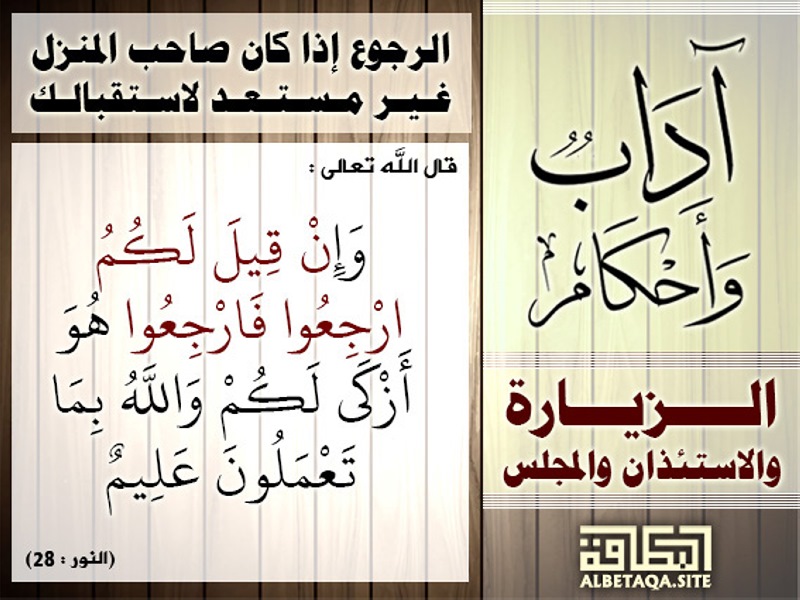 آدَابُ
وَأَحْكَام
الـزيـارة
والاستئذان والمجلس
الرجوع إذا كان صاحب المنزل
غير مستعد لاستقبالك
قال الله تعالى :
وَإِنْ قِيلَ لَكُمُ
ارْجِعُوا فَارْجِعُوا هُوَ
أَزْكَى لَكُمْ وَاللَّهُ بِمَا
تَعْمَلُونَ عَلِيمٌ
(النور : 28)
البطاقة
ALBETAQA.SITE